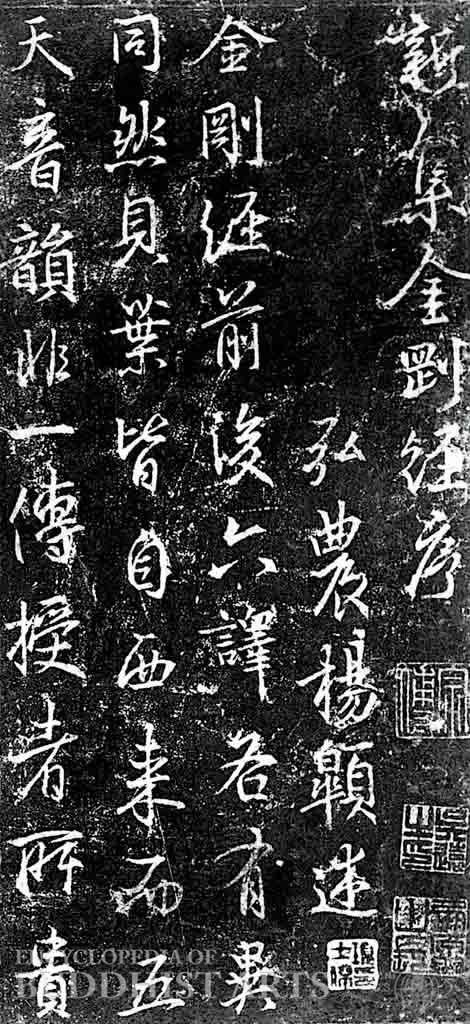 新集金剛經序
弘農楊顗述
金剛經前後六譯各有異
同然貝葉皆自西来而五
天音韻非一傳授者所貴
ENCYCLOPEDIA OF
BUDDHIST ARTS